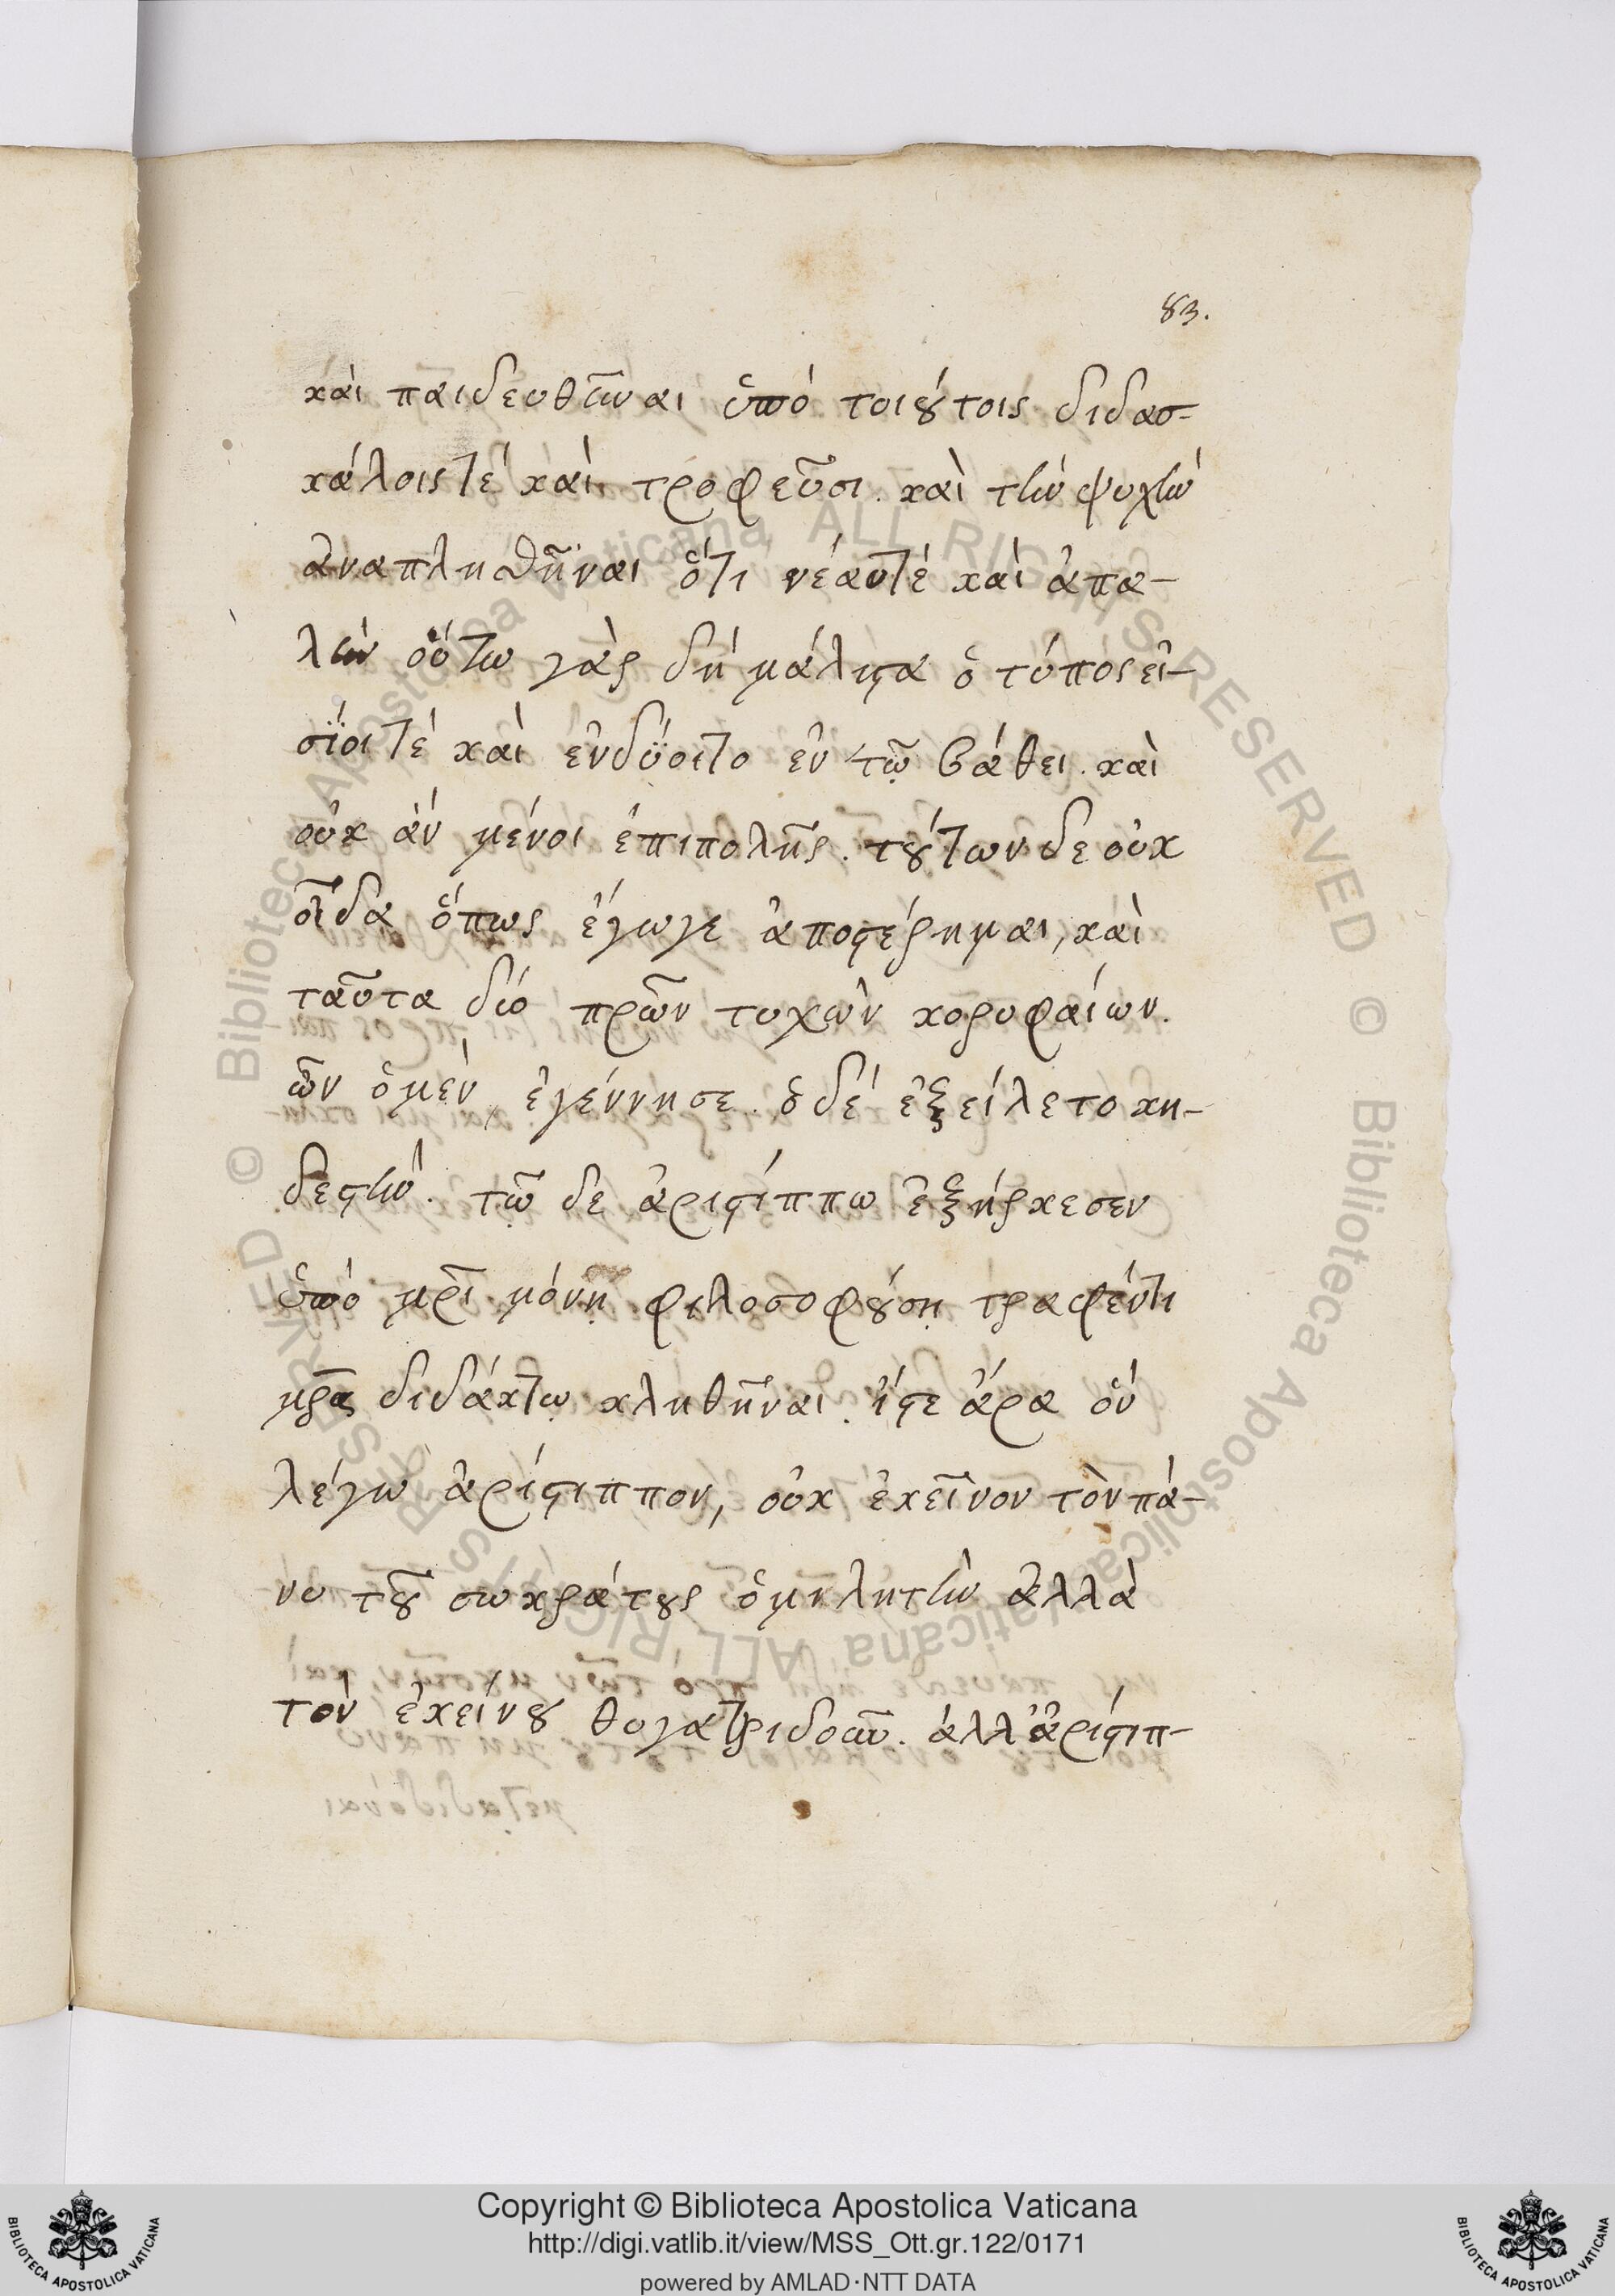 83.
καὶ παιδευθῆναι ὑπὸ τοιούτοις διδασ-
κάλοις τέ καὶ τροφεῦσι. καὶ τὴν ψυχὴν
ἀναπλησθῆναι ὅτι νέαν τέ καὶ ἁπα-
λὴν οὕτω γὰρ δὴ μάλιστα ὁ τύπος εἰ-
σΐοι τέ καὶ ἐνδΰοιτο ἐν τῷ βάθει. καὶ
οὐκ ἂν μένοι ἐπιπολῆς. τούτων δε οὐκ
οἶδα ὅπως ἔγωγε ἀποστέρημαι, καὶ
ταῦτα δυὸ πρῶν τυχὼν κορυφαίων.
ὧν ὁ μὲν ἐγέννησε. ὁ δὲ ἐξείλετο κη-
δεστὴν. τῷ δε ἀριστίππω ἐξήρκεσεν
ὑπὸ μρὶ μόνῃ φιλοσοφούσῃ τραφέντι
μρας διδάκτῳ κληθῆναι. ἴστε ἄρα ὃν
λέγω ἀρίστιππον, οὐκ ἐκεῖνον τὸν πά-
νυ τοῦ σωκράτους ὁμηλητὴν ἀλλὰ
τὸν ἐκείνου θυγατριδοῦν. ἀλλ' ἀρίστιπ-
Copyright © Biblioteca Apostolica Vaticana
http://digi.vatlib.it/view/MSS_Ott.gr.122/0171
powered by AMLAD·NTT DATA
BIBLIOTECA APOSTOLICA VATICANA
BIBLIOTECA APOSTOLICA VATICANA
© Biblioteca Apostolica Vaticana ALL RIGHTS RESERVED © Biblioteca Apostolica Vaticana ALL RIGHTS RESERVED